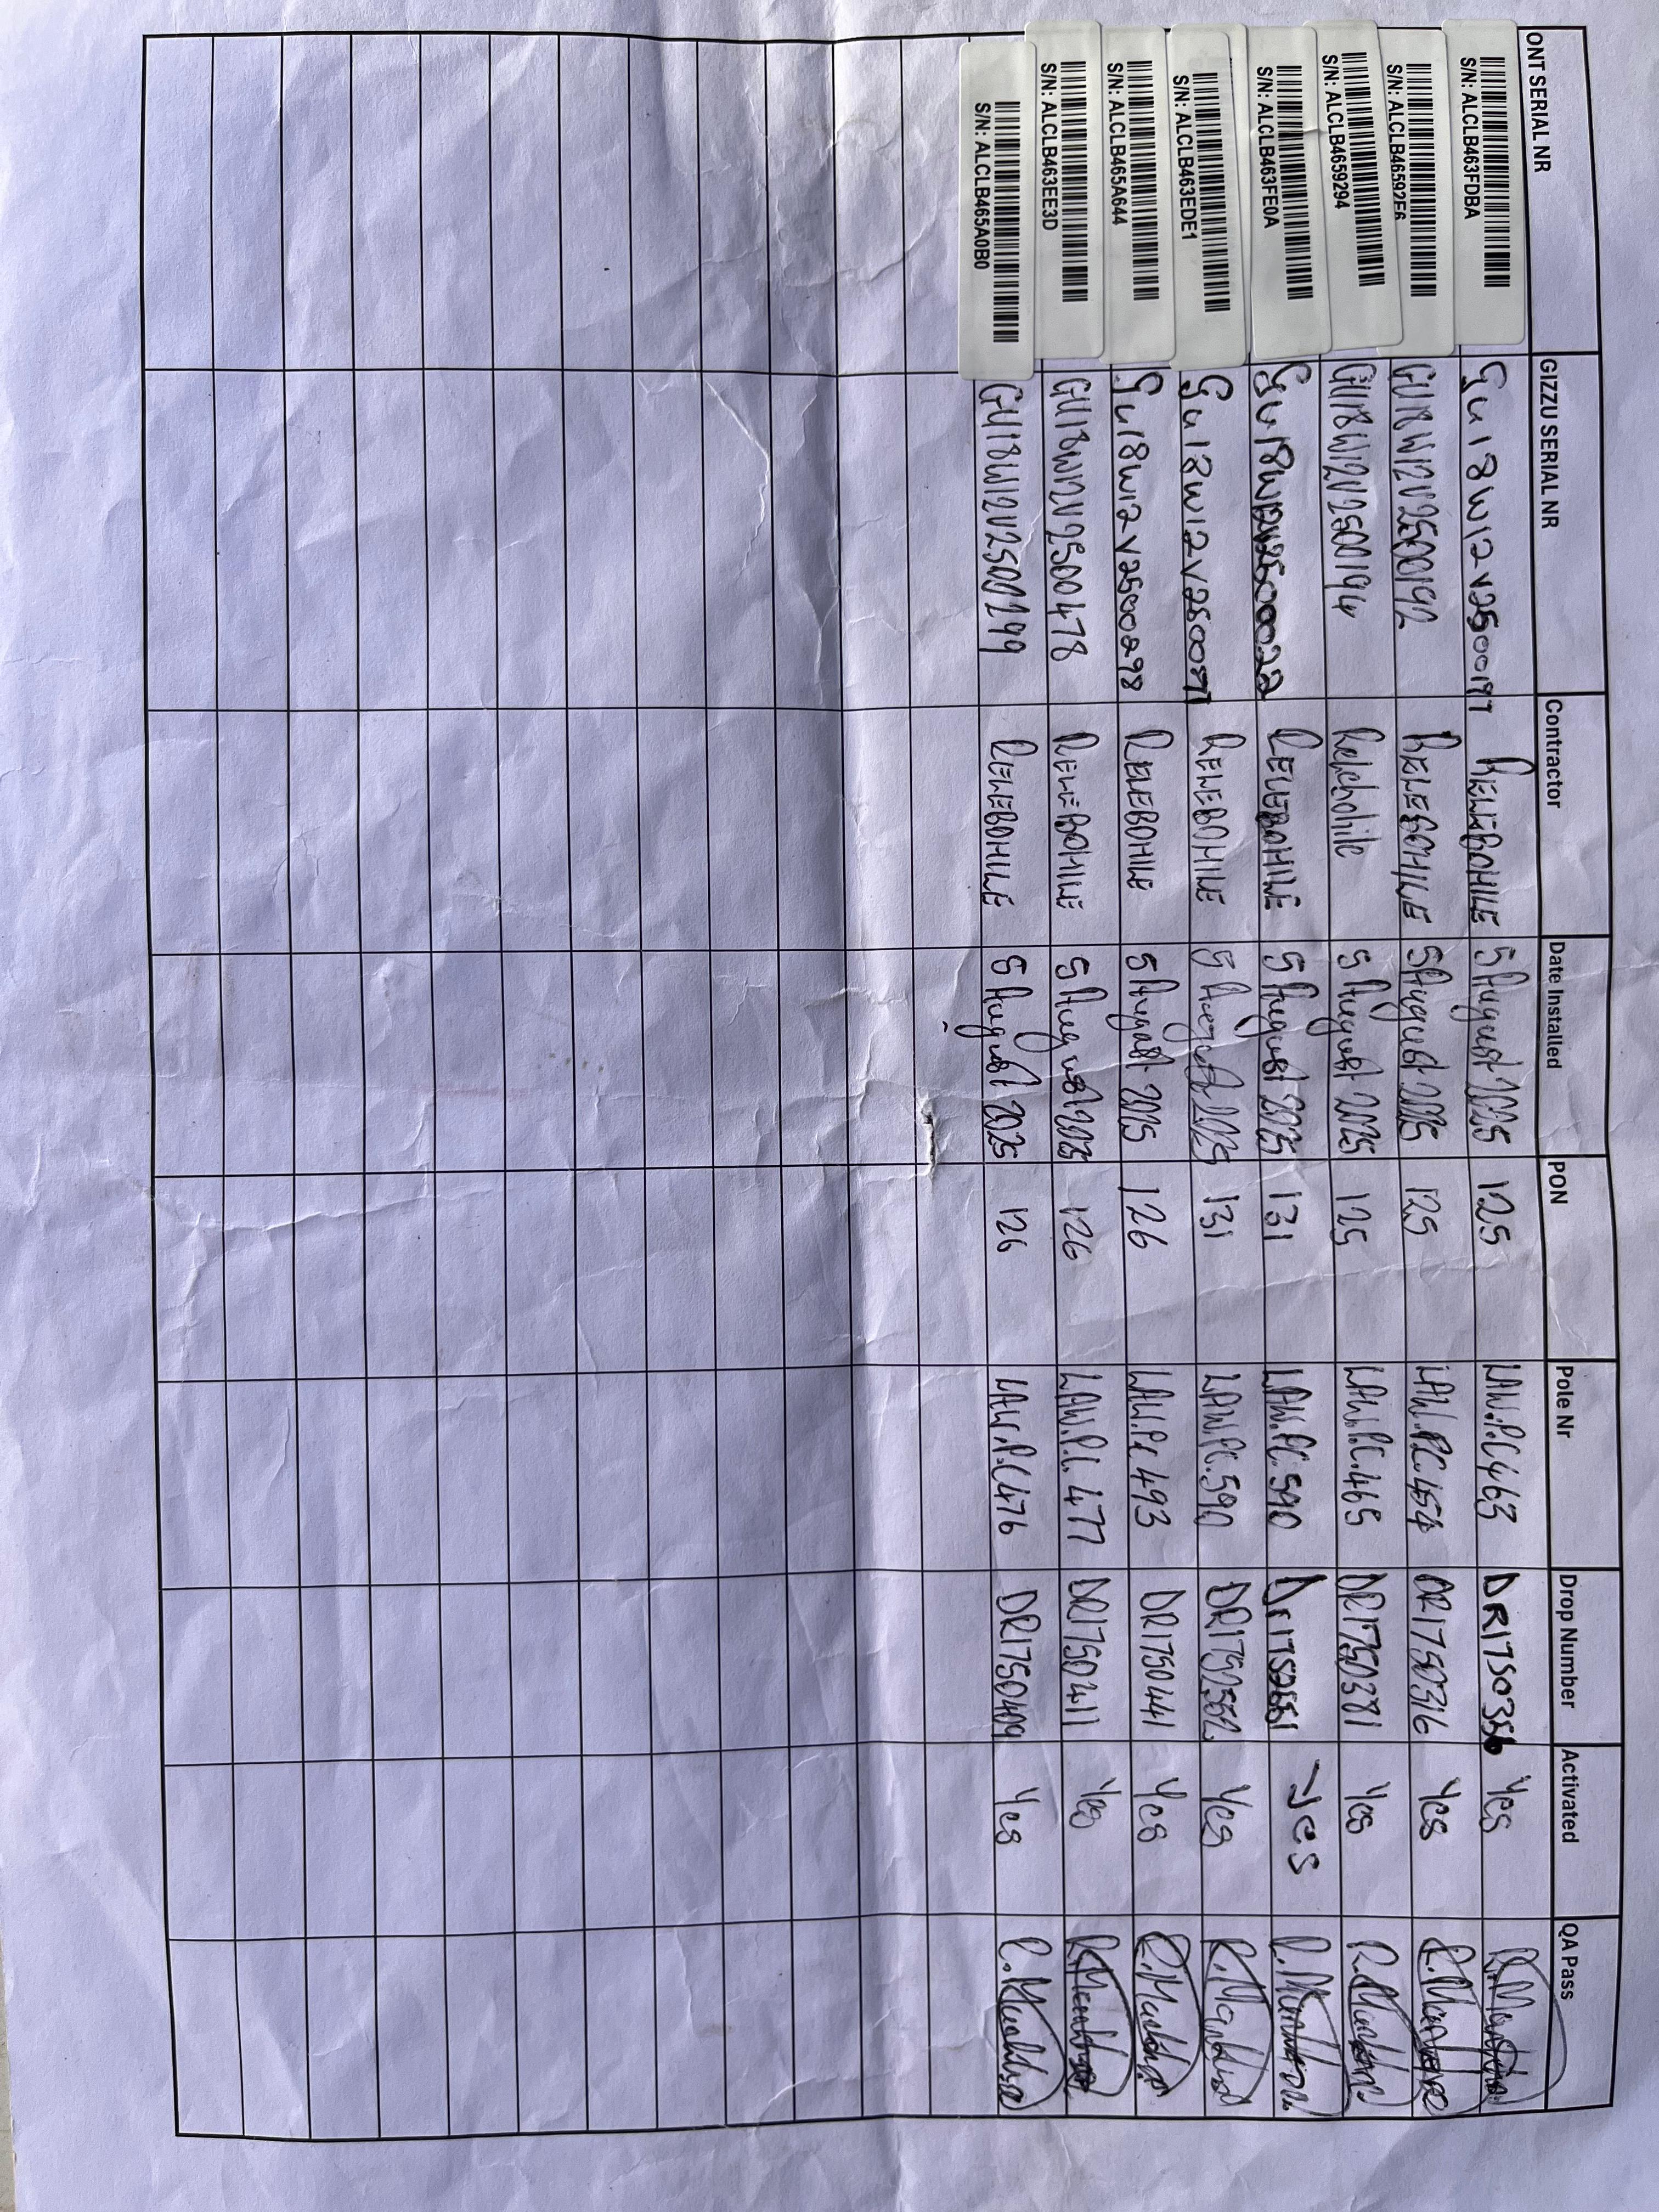 ONT SERIAL NR GIZZU SERIAL NR Contractor Date Installed PON Pole Nr Drop Number Activated QA Pass
S/N: ALCLB463FDBA GU18W12V2500197 RELEBOHILE 5 August 2025 125 LAW.P.C463 DR1750356 Yes
S/N: ALCLB46592E6 GU18W12V2500192 RELEBOHILE 5 August 2025 125 LAW.P.C.454 DR1750316 Yes
S/N: ALCLB4659294 GU18W12V2500194 Relebohile 5 August 2025 125 LAW.P.C.465 DR1750381 Yes
S/N: ALCLB463FE0A GU18W12V2500022 RELEBOHILE 5 August 2025 131 LAW.PC.590 Yes
S/N: ALCLB463EDE1 RELEBOHILE 5 August 2025 131 LAW.PC.590 Yes
S/N: ALCLB465A644 GU18W12V2500298 RELEBOHILE 5 August 2025 126 LAW.P.C.493 DR1750441 Yes
S/N: ALCLB463EE3D GU18W12V2500478 RELEBOHILE 5 August 2025 126 LAW.P.C.477 DR1750411 Yes
S/N: ALCLB465A0B0 GU18W12V2500299 RELEBOHILE 5 August 2025 126 LAW.P.C476 DR1750409 Yes